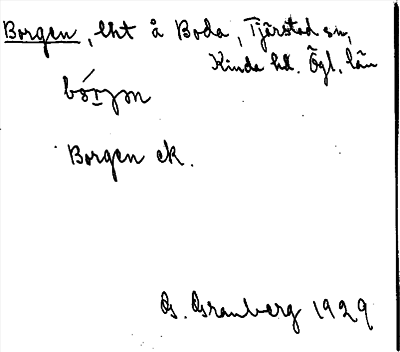 Borgen, lht å Boda, Tjärstad sn,
Kinda hd. Ögl. län
Borgen ek.
G. Granberg 1929